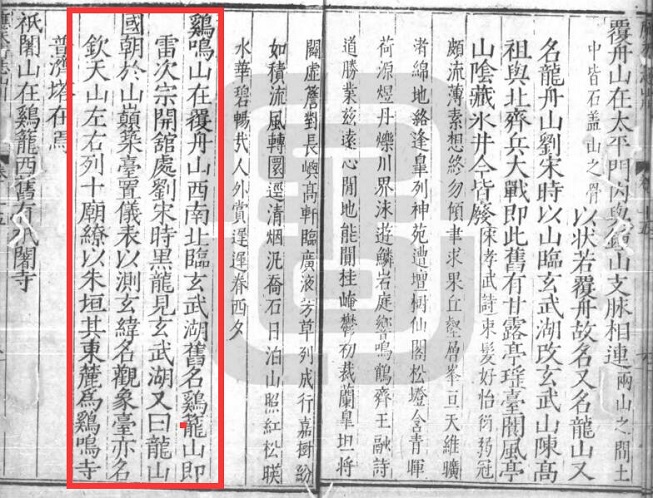 覆舟山在太平門內與鍾山支脈相連兩山之間土
中皆石蓋山之骨
以狀若覆舟故名又名龍山又
名龍舟山劉宋時以山臨玄武湖改玄武山陳髙
祖與北齊兵大戰即此舊有甘露亭瑤臺閬風亭
山陰藏氷井今皆廢宋孝武詩束髮好怡衍弱冠
頗流薄素想終勿傾聿求果丘壑層峯亘天維曠
渚綿地絡逢皐列神苑遭壇樹仙閣松墱含青暉
荷源煜丹爍川界泳遊鱗岩庭響鳴鶴齊王融詩
道勝業茲遠心閒地能閒桂崦鬱初裁蘭皐坦將
闢虛簷對長嶼髙軒臨廣液芳草列成行嘉樹紛
如積流風轉圜逕清烟泛喬石日泊山照紅松暎
水華碧暢哉人外賞遲遲眷西夕
雞鳴山在覆舟山西南北臨玄武湖舊名雞籠山即
雷次宗開舘處劉宋時黑龍見玄武湖又曰龍山
國朝於山巔築臺置儀表以測玄緯名觀象臺亦名
欽天山左右列十廟繚以朱垣其東麓為雞鳴寺
普濟塔在焉
祇闍山在雞籠西舊有祇闍寺